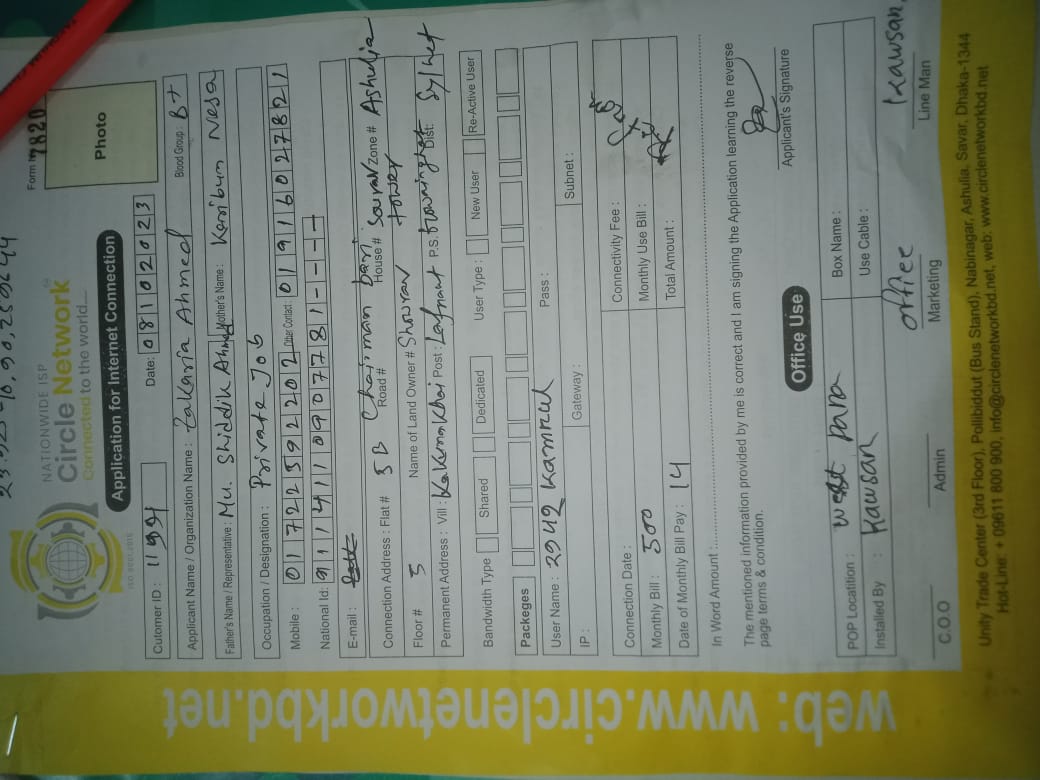 NATIONWIDE ISP
Circle Network
Connected to the world....
ISO 9001:2015
Form No 7820
Photo
Application for Internet Connection
Cutomer ID : 1191 Date: 08102023
Applicant Name / Organization Name : Zakaria Ahmed Blood Group B+
Father's Name / Representative : Mu. Shiddik Ahmed Mother's Name : Karibun Nesa
Occupation / Designation : Private Job
Mobile : 01722592202 Other Contact: 01916027821
National Id: 9114110907781-----
E-mail :
Connection Address : Flat # 5B Road # Chairman bari House# Souran tower Zone # Ashulia
Floor # 5 Name of Land Owner # Showran
Permanent Address : Vill : Post : P.S. Dist: Sylhet
Bandwidth Type Shared Dedicated User Type : New User Re-Active User
Packeges
User Name : 2942 Kamrul Pass :
IP : Gateway : Subnet :
Connection Date : Connectivity Fee :
Monthly Bill : 500 Monthly Use Bill :
Date of Monthly Bill Pay : 14 Total Amount :
In Word Amount :
The mentioned information provided by me is correct and I am signing the Application learning the reverse
page terms & condition.
Applicant's Signature
Office Use
POP Locatition : west para Box Name :
Installed By : Kawsan Use Cable :
office Kawsan
C.O.O Admin Marketing Line Man
Unity Trade Center (3rd Floor), Pollibiddut (Bus Stand), Nabinagar, Ashulia, Savar, Dhaka-1344
Hot-Line: + 09611 800 900, info@circlenetworkbd.net, web: www.circlenetworkbd.net
web: www.circlenetworkbd.net